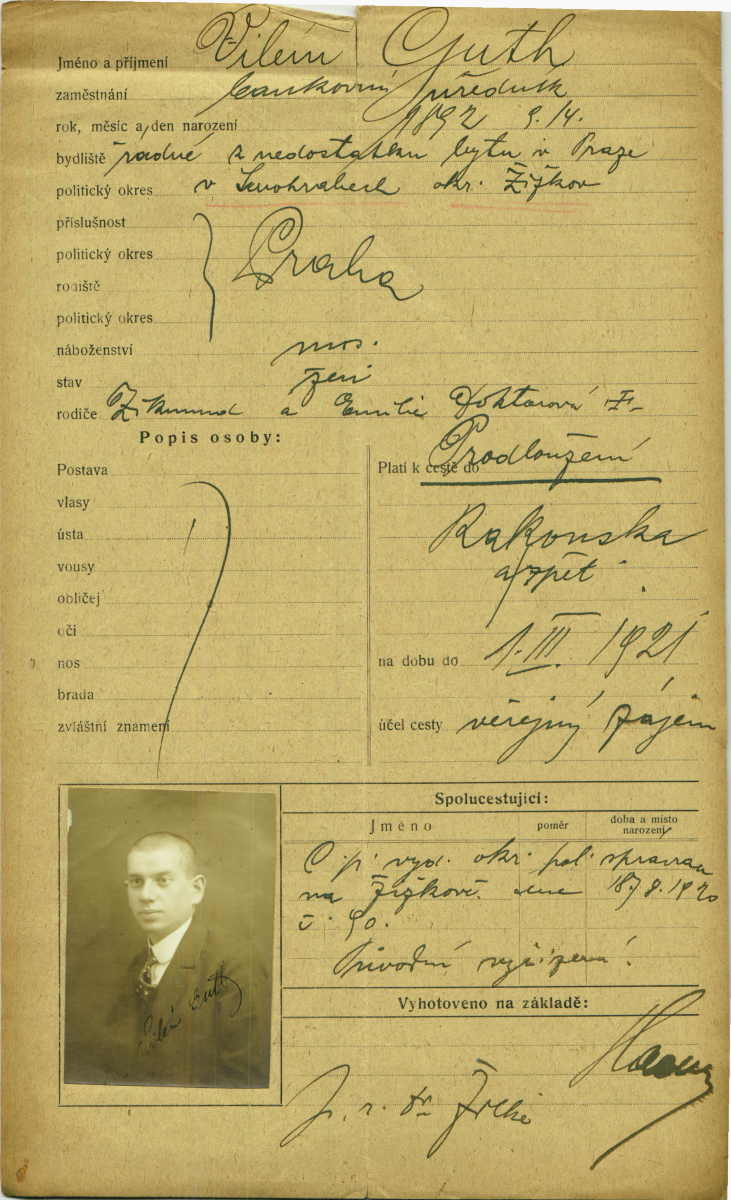 Jméno a příjmení Vilém Guth
zaměstnání bankovní úředník
rok, měsíc a den narození 1892 9./4.
bydliště řádné z nedostatku bytu v Praze
politický okres v Senohrabech okr. Žižkov
příslušnost
politický okres Praha
rodiště
politický okres
náboženství mos.
stav žen
rodiče Zikmund a Emilie Doktorová
Popis osoby:
Postava
vlasy
ústa
vousy
obličej
oči
nos
brada
zvláštní znamení
Platí k cestě do Prodloužení
Rakouska
a zpět
na dobu do 1. III. 1921
účel cesty veřejný zájem
Spolucestující:
Jméno poměr doba a místo narození
C. p. vyd. okr. pol. správou
na Žižkově dne 18/8. 1920
č. 90.
Původní vyřízena!
Vilém Guth
Vyhotoveno na základě: